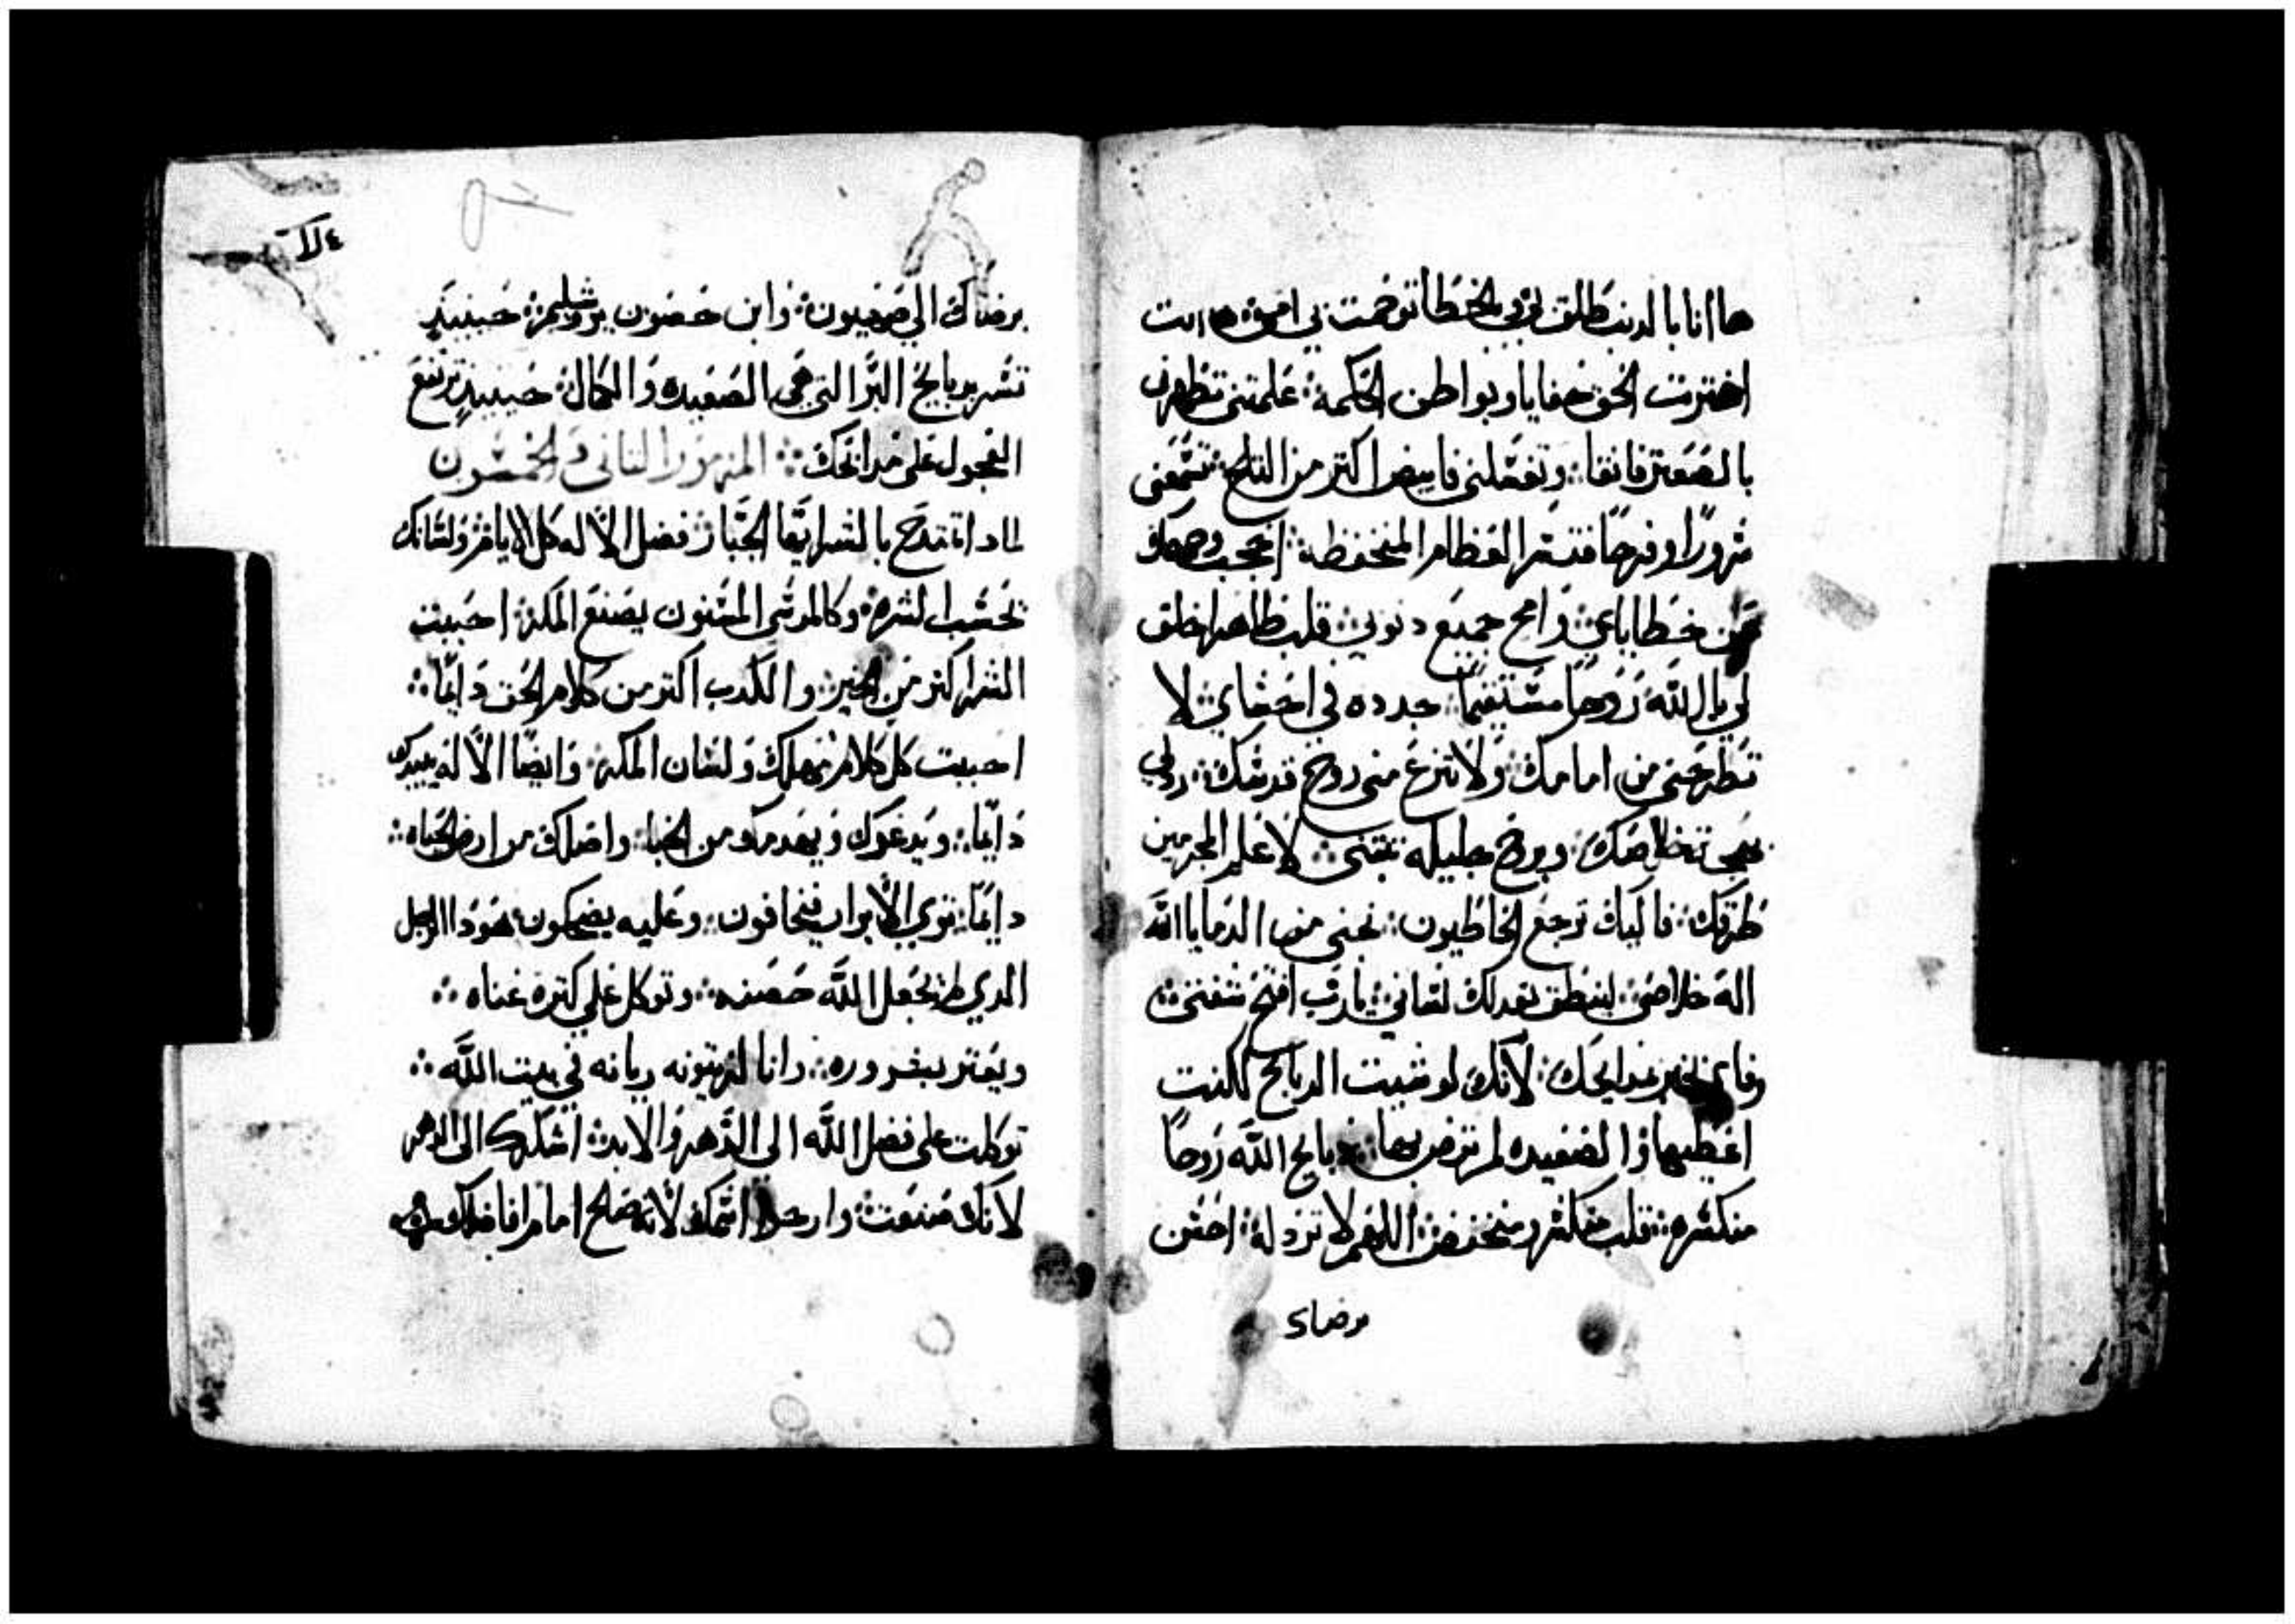 ها انا بالدنب طلق بي وبالخطا توحمت بي امي ها انت
اخترت الحق خفايا وبواطن الحكمة علمتني تطهرني
بالصعتر فانقا وتغسلني فابيض اكتر من التلج تشبعني
سرورًا وفرحًا فتسر العظام المنخفظة احجب وجهك
من خطاياي وامح جميع دنوبي قلب طاهر اخلق
لي يا الله روحًا مستقيمًا جدده في احشاي لا
تطرحني من امامك ولا تنزع مني روح قدسك رد لي
خلاصك وبروح جليله تبتني لاعلم المجرمين
طرقك فاليك ترجع الخاطيون نجني من الدما يا الله
اله خلاصي لينطق بعدلك لساني يا رب افتح شفتي
وفاي يخبر مدايحك لانك لو شيت الدبايح لكنت
اعطيها والصعيده لم ترض بها دبايح الله روحًا
منكسره قلب منكسر ومنخفض اللهم لا تردله احسن
برضاك
٤٧
برضاك الي صهيون وابن حصون يروشليم حينيدٍ
تشر بدبايح البر التي هي الصعيده والكمال حينيدٍ ترتفع
العجول على مدابحك المزمور التاني والخمسون
لمادا تمتدح بالشر ايها الجبار فضل الاله كل الايام ولسانك
تحسب الشر وكالموسى المسنون يصنع المكر احببت
الشر اكتر من الخير والكدب اكتر من كلام الحق دايمًا
احببت كل كلام يهلك ولسان المكر وايضًا الاله يبيدك
دايمًا ويدعوك ويهدمك من الخبا واصلك من ارض الحياه
دايمًا ترى الابرار فيخافون وعليه يضحكون هودا الرجل
الدي لم يجعل الله حصنه وتوكل علي كترة غناه
ويعتر بغروره وانا لزيتونه ريانه في بيت الله
توكلت على فضل الله الى الدهر والابد اشكرك الى الدهر
لانك صنعت وارجا اسمك لانه صلح امام افاضلك